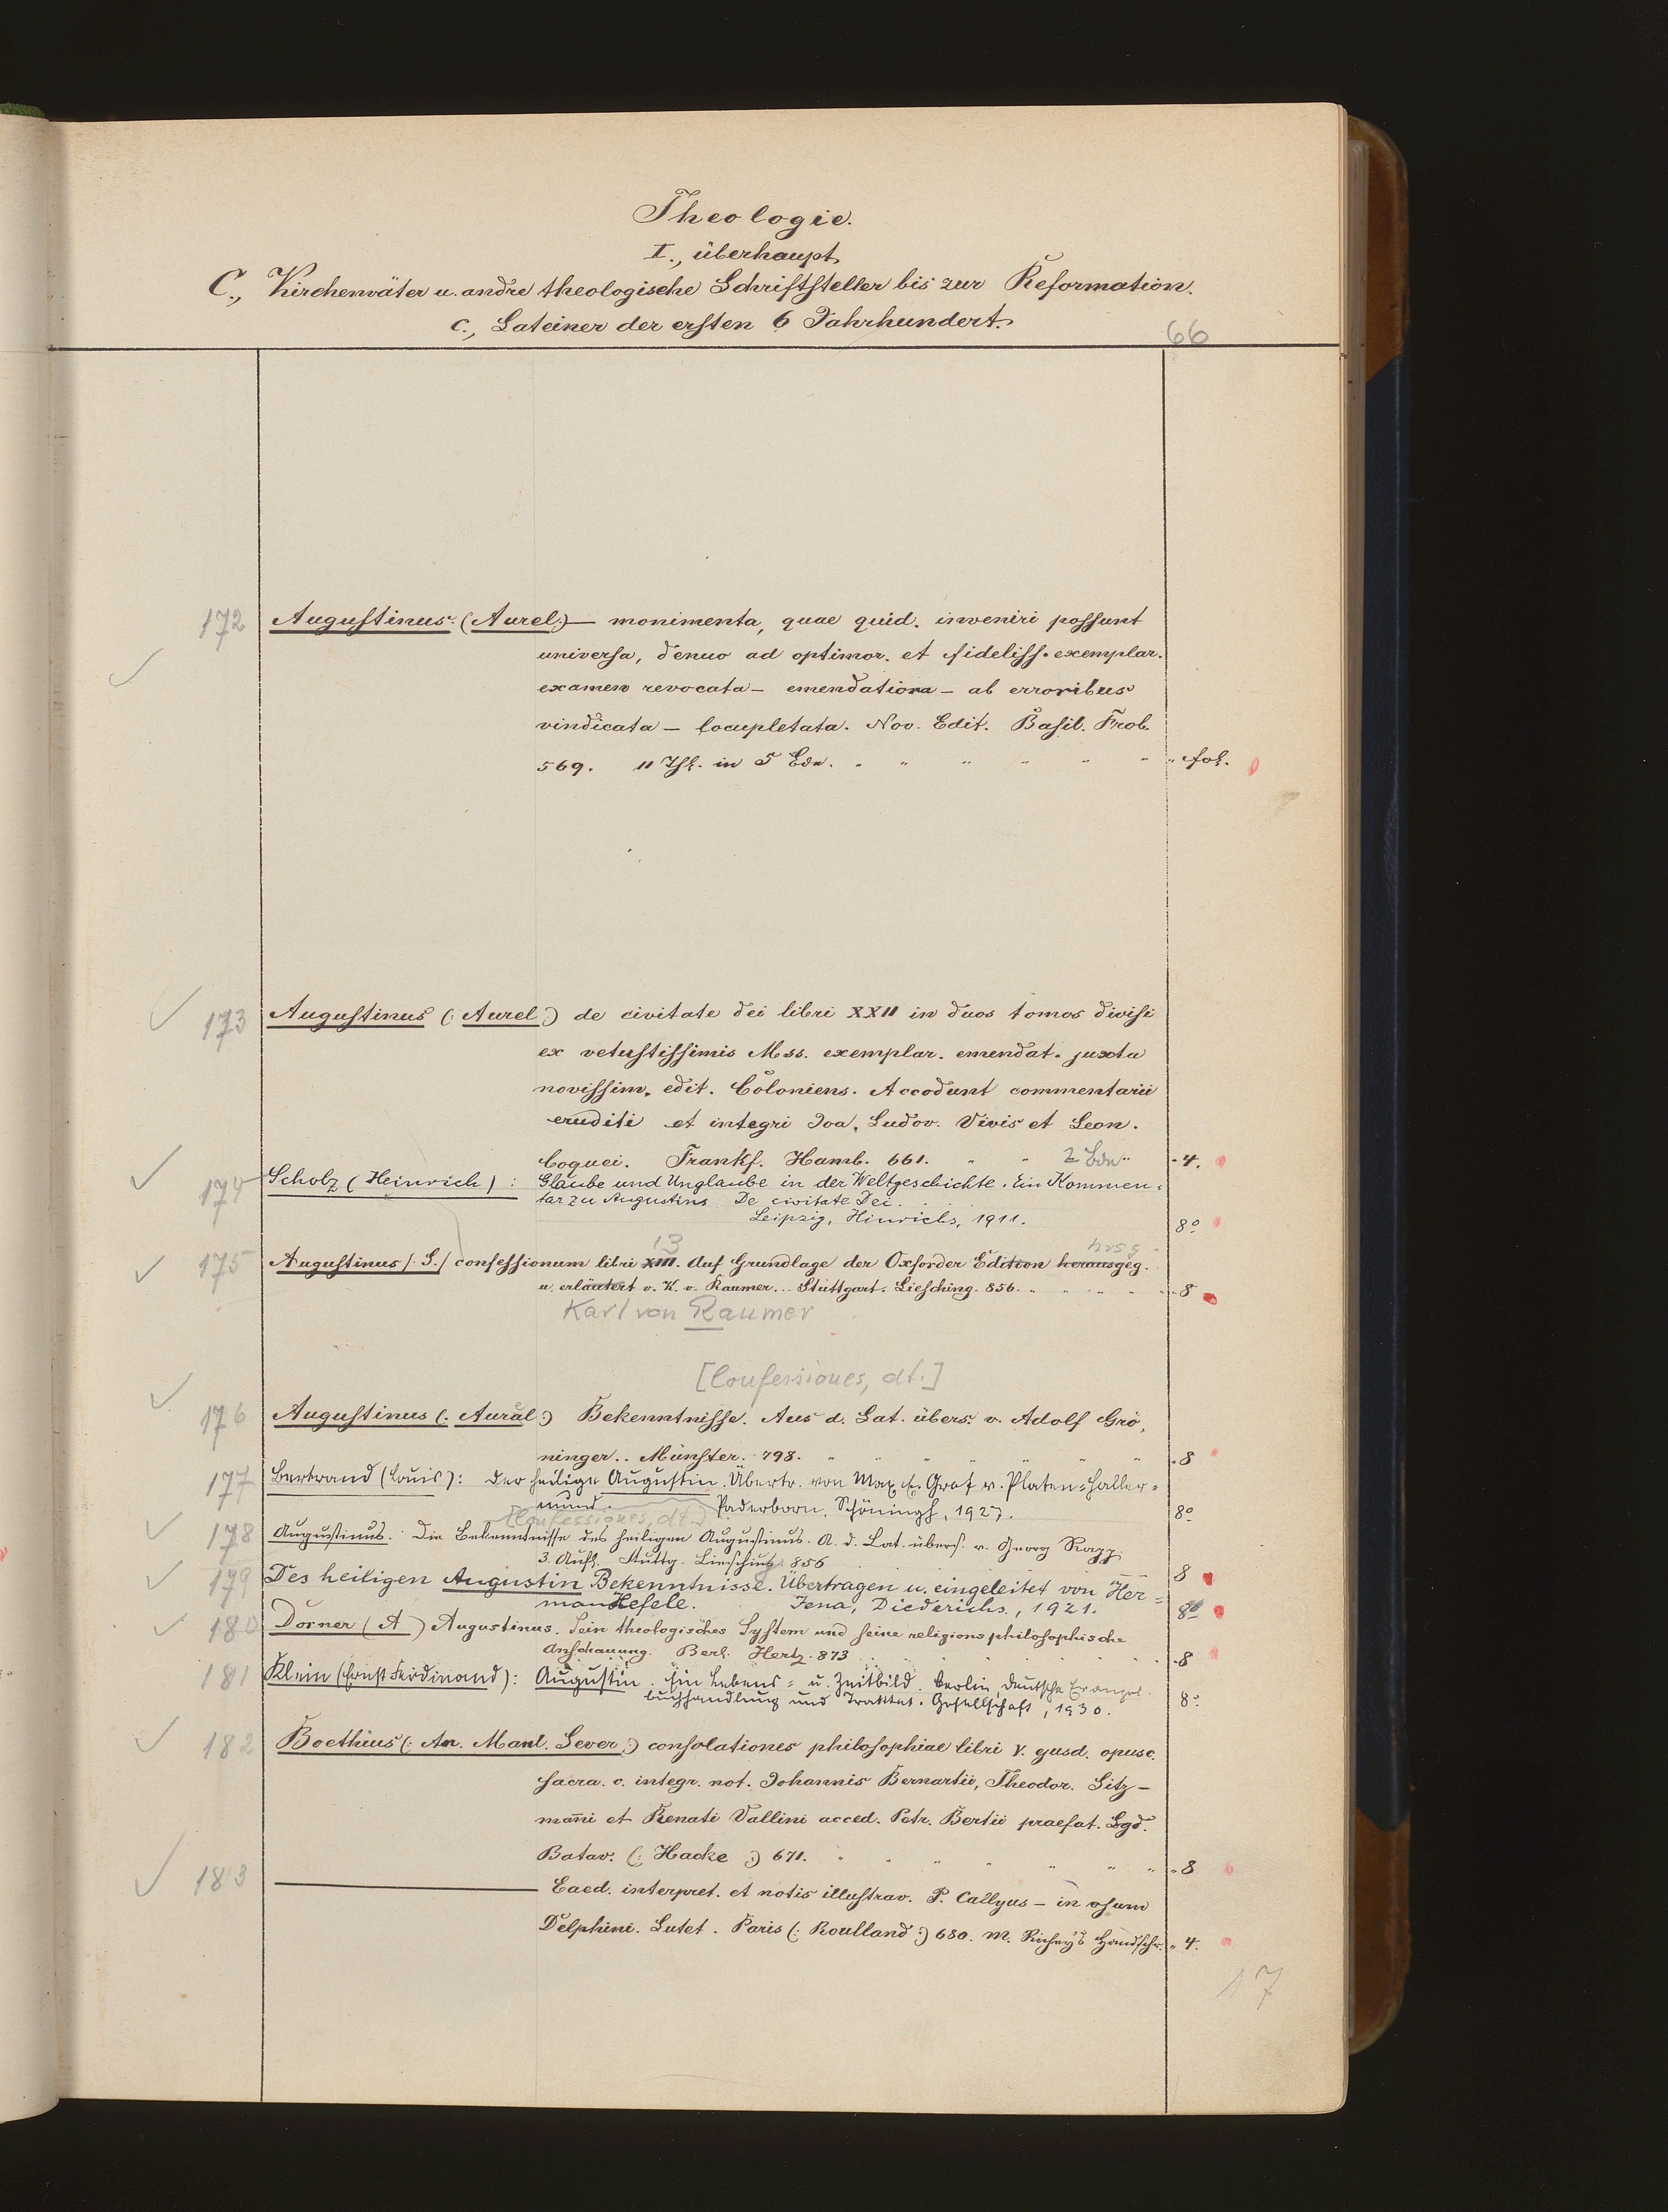 Theologie.
I., überhaupt
C., Kirchenväter u. andre theologische Schriftsteller bis zur Reformation.
c., Lateiner der ersten 6 Jahrhundert.
66
172 Augustinus (Aurel:) — monimenta, quae quid. inveniri possunt
universa, denuo ad optimor. et fideliss. exemplar.
examen revocata — emendatiora — ab erroribus
vindicata — locupletata. Nov. Edit. Basil. Frob.
569. 11 Thl. in 5 Bdn. " " " " " " " fol.
173 Augustinus (: Aurel :) de civitate dei libri XXII in duos tomos divisi
ex vetustissimis Mss. exemplar. emendat. juxta
novissim. edit. Coloniens. Accodunt commentarii
eruditi et integri Joa. Ludov. Vivis et Leon.
Coquei. Frankf. Hamb. 661. " " 2 Bdn " " 4.
174 Scholz (Heinrich) : Glaube und Unglaube in der Weltgeschichte. Ein Kommen=
tar zu Augustins De civitate Dei.
Leipzig, Hinrichs, 1911. 8o
13 hrsg.
175 Augustinus /: S. / confessionum libri XIII. Auf Grundlage der Oxforder Edition herausgeg.
u. erläutert v. K. v. Raumer... Stuttgart. Liesching. 856. " " " " " 8
Karl von Raumer
[Confessiones, dt.]
176 Augustinus (: Aurel :) Bekenntnisse. Aus d. Lat. übers. v. Adolf Grö,
ninger.. Münster. 798. " " " " " " " 8
177 Bertrand (Louis): Der heilige Augustin. Übertr. von Max E. Graf v. Platen=Haller=
mund. Paderborn, Schöningh, 1927. 8o
[Confessiones, dt.]
178 Augustinus. Die Bekenntnisse des heiligen Augustinus. A. d. Lat. übers. v. Georg Rapp
3. Aufl. Stuttg. Liesching. 856 8
179 Des heiligen Augustin Bekenntnisse. Übertragen u. eingeleitet von Her=
man Hefele. Jena, Diederichs, 1921. 8o
180 Dorner (A) Augustinus. Sein theologisches System und seine religionsphilosophische
Anschauung. Berl. Hertz. 873 8
181 Klein (Ernst Ferdinand): Augustin. Ein Lebens= u. Zeitbild. Berlin, Deutsche Evangel.
buchhandlung und Traktat=Gesellschaft, 1930. 8o
182 Boethius (: An. Manl. Sever :) consolationes philosophiae libri V. ejusd. opusc.
sacra. c. integr. not. Johannis Bernartii, Theodor. Sitz—
mañi et Renati Vallini acced. Petr. Bertii praefat. Lgd.
Batav. (: Hacke :) 671. " " " " " " " 8
183 ——— Eaed. interpret. et notis illustrav. P. Callyus — in usum
Delphini. Lutet. Paris (: Roulland :) 680. M. Richey's Handschr. " 4.
17